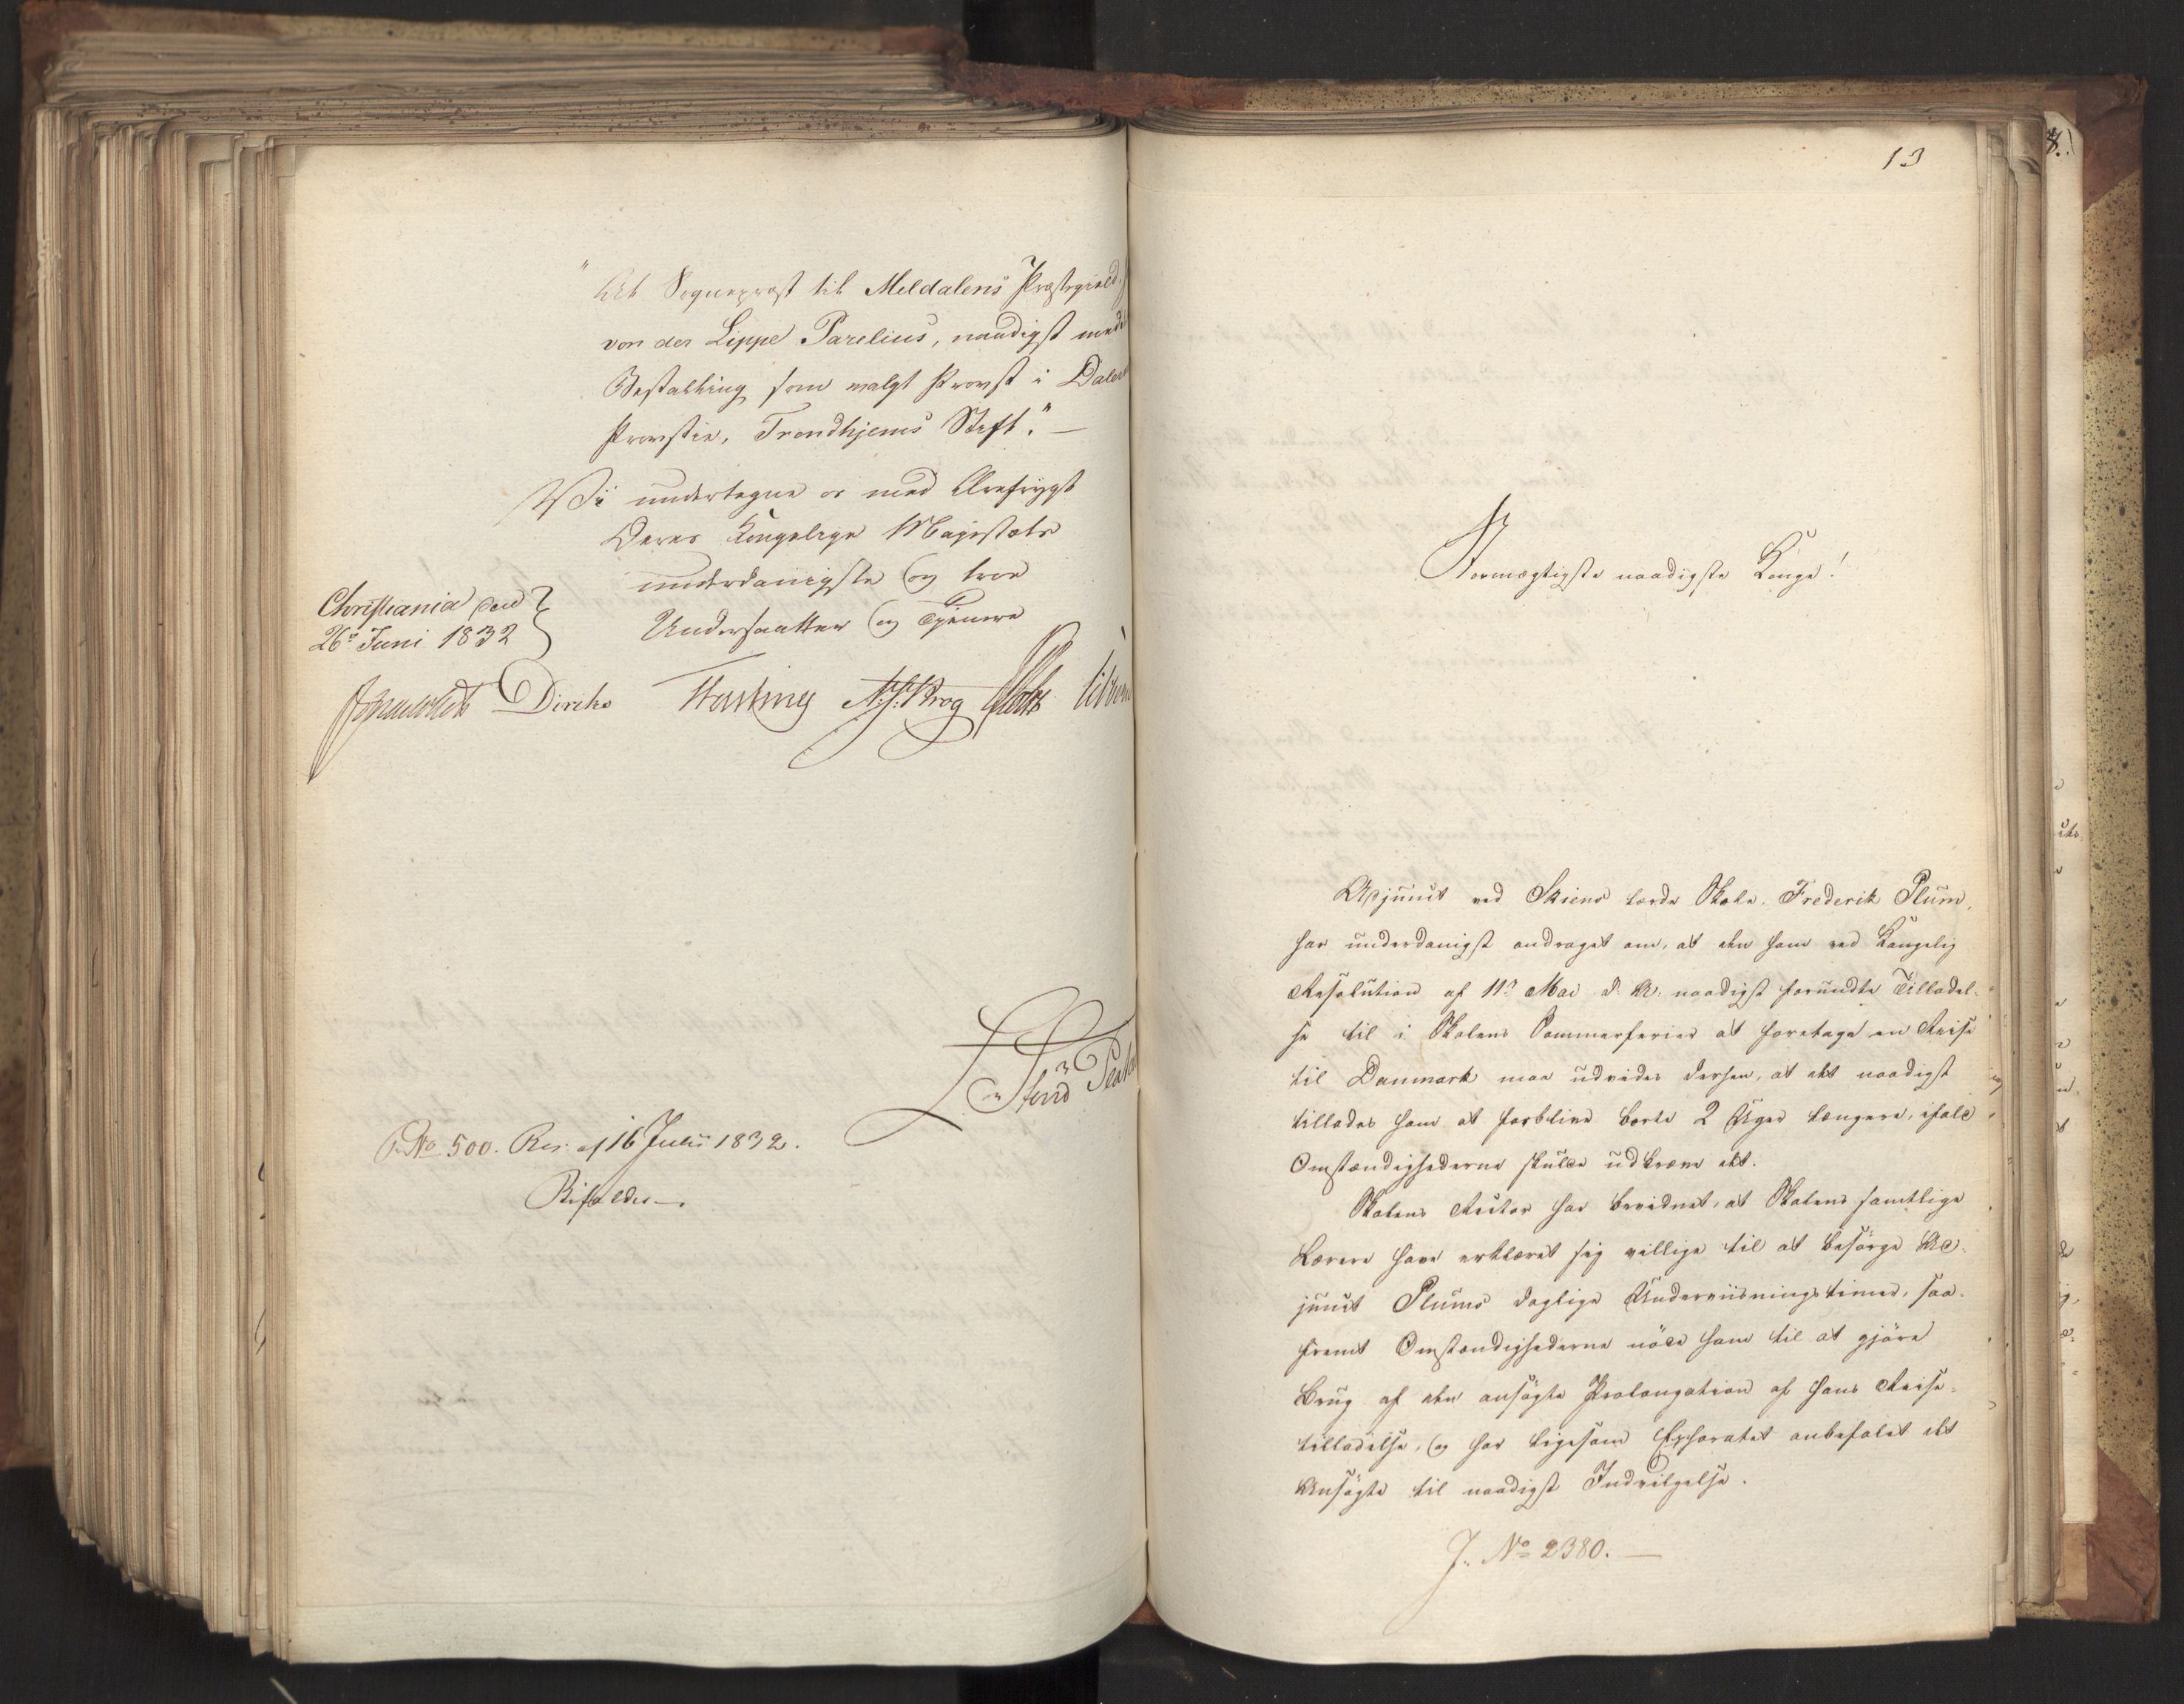 "At Sognepræst til Meldalens Præstegield,
von der Lippe Parelius, naadigst meddeles
Bestalling som valgt Provst i Dalernes
Provstie, Trondhjems Stift." —
Vi undertegne os med Ærefrygt
Deres Kongelige Majestæts
underdanigste og troe
Undersaatter og Tjenere
Christiania den
26de Juni 1832
Diriks A. S. Krog
R No 500. Res. af 16 Julii 1832.
Bifaldes.
13
Stormægtigste naadigste Konge!
Adjunct ved Skiens lærde Skole, Frederik Plum,
har underdanigst andraget om, at den ham ved Kongelig
Resolution af 11te Mai d. A. naadigst forundte Tilladel-
se til i Skolens Sommerferier at foretage en Reise
til Danmark maa udvides derhen, at det naadigst
tillades ham at forblive borte 2 Uger længere, ifald
Omstændighederne skulde udkræve det.
Skolens Rector har bevidnet, at Skolens samtlige
Lærere have erklæret sig villige til at besørge Ad-
junct Plums daglige Underviisningstimer, saa-
fremt Omstændighederne nöde ham til at gjöre
Brug af den ansögte Prolongation af hans Reise-
tilladelse, og har ligesom Ephoratet anbefalet det
Ansögte til naadigst Indvilgelse.
J. No 2380. —